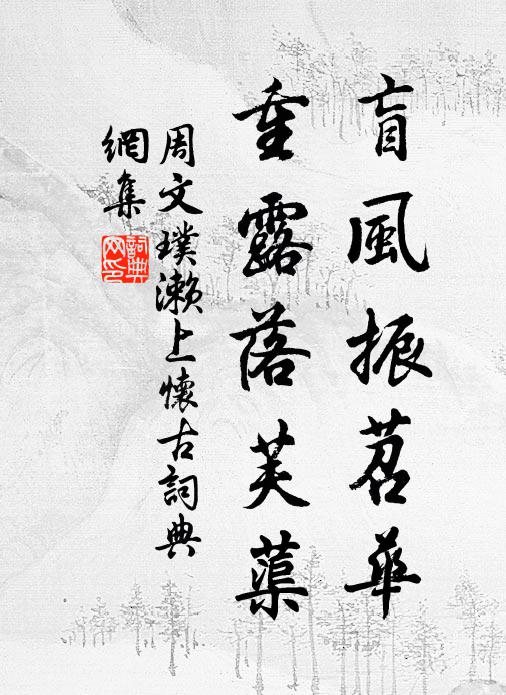 盲風振苕華
重露落芙蕖
周文璞瀨上懷古詞典
網集
詞典網印